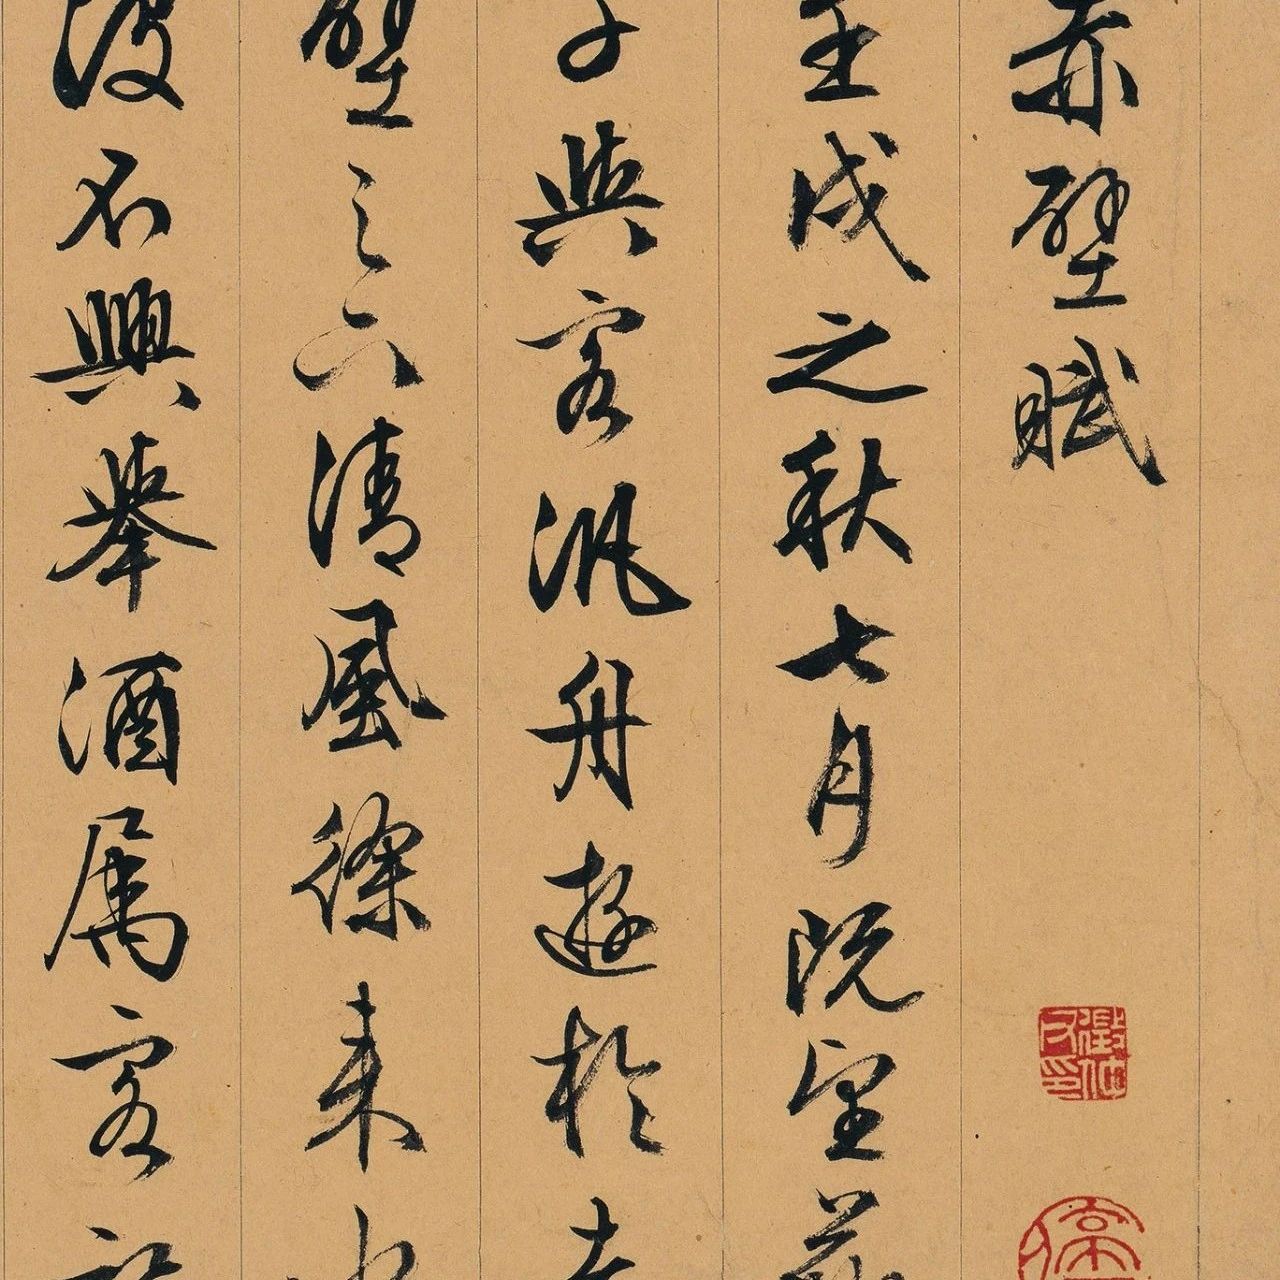 赤壁賦
徵仲父印
壬戌之秋七月既望蘇
子與客汎舟遊於赤
壁之下清風徐來水
波不興舉酒屬客